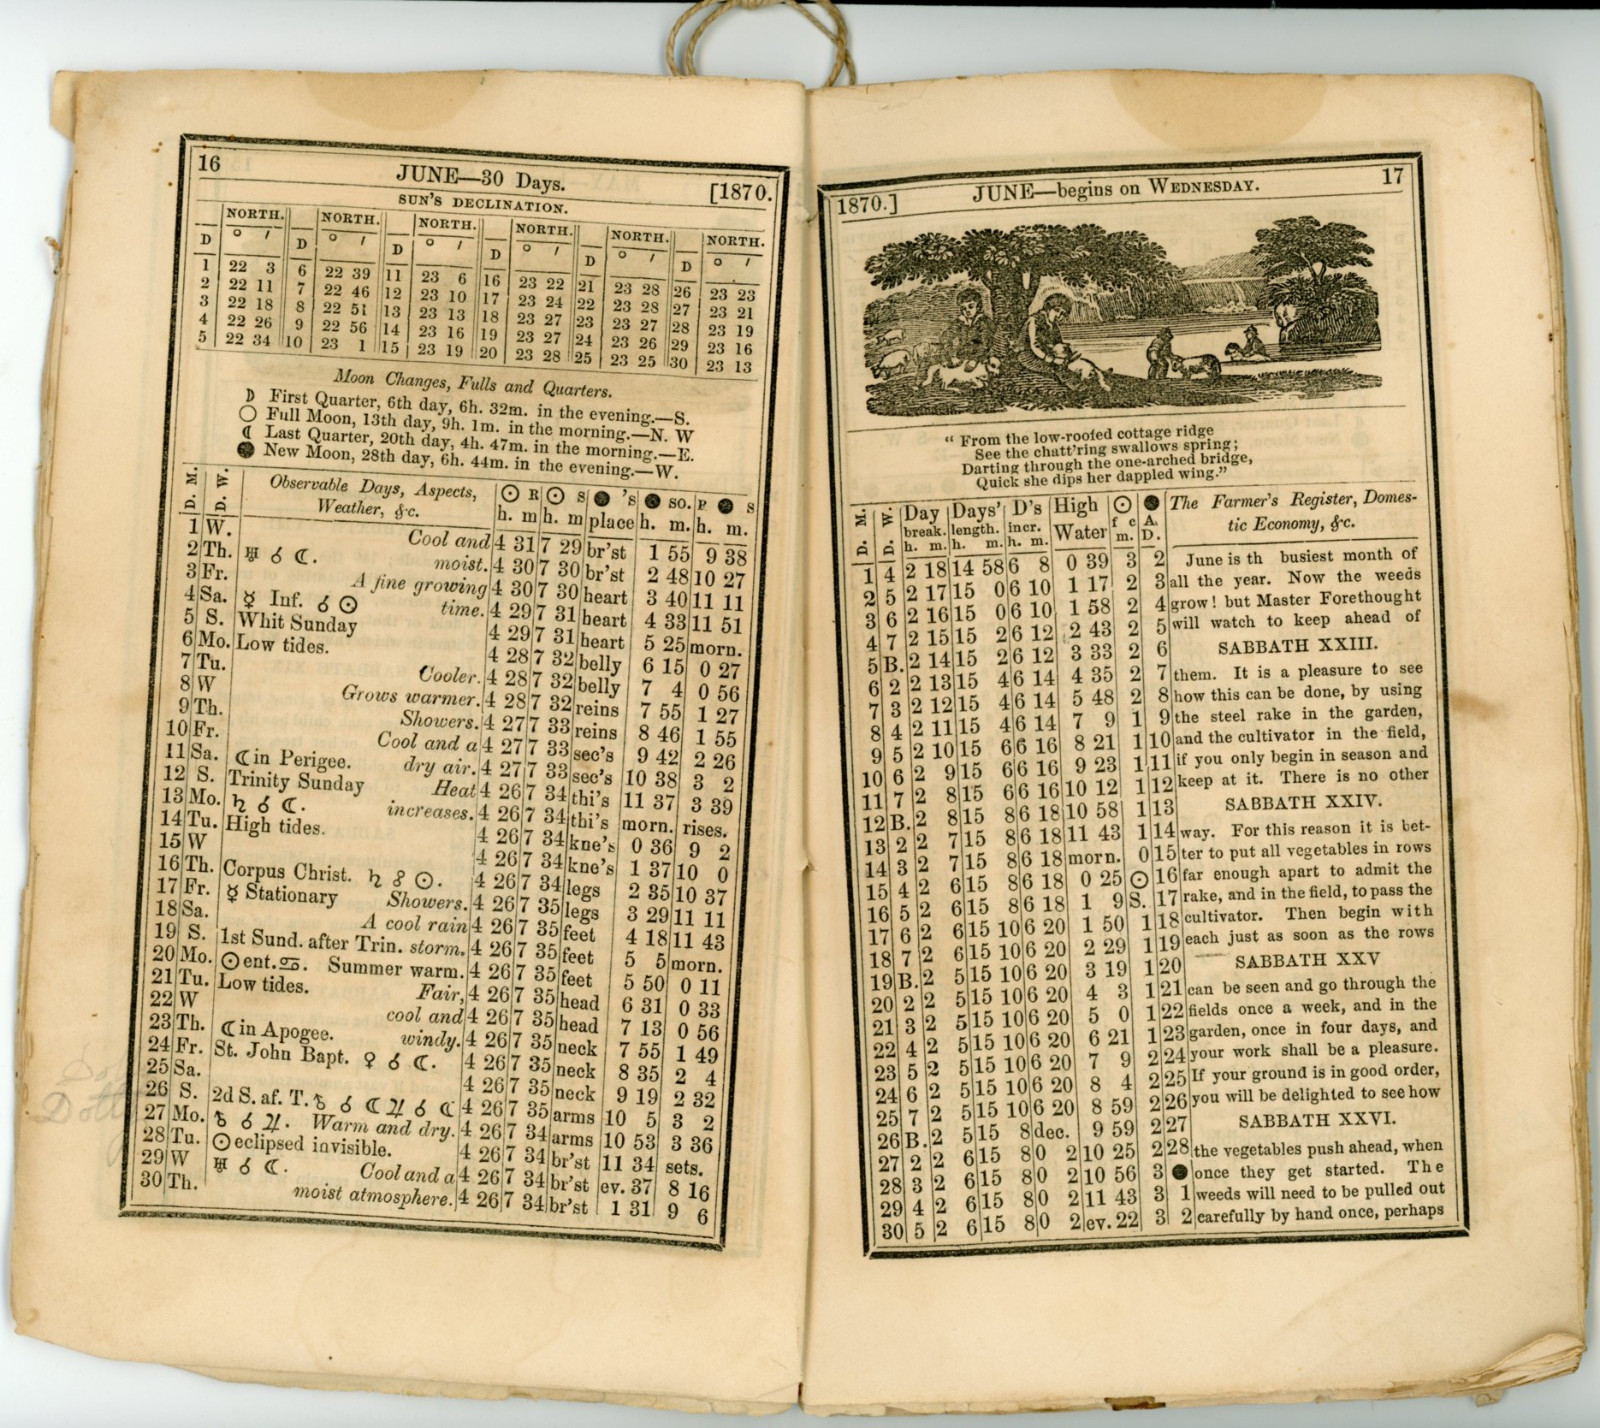 16 JUNE—30 Days. [1870.
SUN'S DECLINATION.
NORTH. NORTH. NORTH. NORTH. NORTH. NORTH.
D ○ / D ○ / D ○ / D ○ / D ○ / D ○ /
1 22 3 6 22 39 11 23 6 16 23 22 21 23 28 26 23 23
2 22 11 7 22 46 12 23 10 17 23 24 22 23 28 27 23 21
3 22 18 8 22 51 13 23 13 18 23 27 23 23 27 28 23 19
4 22 26 9 22 56 14 23 16 19 23 27 24 23 26 29 23 16
5 22 34 10 23 1 15 23 19 20 23 28 25 23 25 30 23 13
Moon Changes, Fulls and Quarters.
☽ First Quarter, 6th day, 6h. 32m. in the evening.—S.
○ Full Moon, 13th day, 9h. 1m. in the morning.—N. W
☾ Last Quarter, 20th day, 4h. 47m. in the morning.—E.
● New Moon, 28th day, 6h. 44m. in the evening.—W.
D. M. D. W. Observable Days, Aspects, ☉ R ☉ S ● 's ● so. R ● S
Weather, &c. h. m h. m place h. m. h. m.
1 W. Cool and 4 31 7 29 br'st 1 55 9 38
2 Th. ♅ ☌ ☾. moist. 4 30 7 30 br'st 2 48 10 27
3 Fr. A fine growing 4 30 7 30 heart 3 40 11 11
4 Sa. ☿ Inf. ☌ ☉ time. 4 29 7 31 heart 4 33 11 51
5 S. Whit Sunday 4 29 7 31 heart 5 25 morn.
6 Mo. Low tides. 4 28 7 32 belly 6 15 0 27
7 Tu. Cooler. 4 28 7 32 belly 7 4 0 56
8 W Grows warmer. 4 28 7 32 reins 7 55 1 27
9 Th. Showers. 4 27 7 33 reins 8 46 1 55
10 Fr. Cool and a 4 27 7 33 sec's 9 42 2 26
11 Sa. ☾in Perigee. dry air. 4 27 7 33 sec's 10 38 3 2
12 S. Trinity Sunday Heat 4 26 7 34 thi's 11 37 3 39
13 Mo. ♄ ☌ ☾. increases. 4 26 7 34 thi's morn. rises.
14 Tu. High tides. 4 26 7 34 kne's 0 36 9 2
15 W 4 26 7 34 kne's 1 37 10 0
16 Th. Corpus Christ. ♄ ☍ ☉. 4 26 7 34 legs 2 35 10 37
17 Fr. ☿ Stationary Showers. 4 26 7 35 legs 3 29 11 11
18 Sa. A cool rain 4 26 7 35 feet 4 18 11 43
19 S. 1st Sund. after Trin. storm. 4 26 7 35 feet 5 5 morn.
20 Mo. ☉ent.♋. Summer warm. 4 26 7 35 feet 5 50 0 11
21 Tu. Low tides. Fair, 4 26 7 35 head 6 31 0 33
22 W cool and 4 26 7 35 head 7 13 0 56
23 Th. ☾in Apogee. windy. 4 26 7 35 neck 7 55 1 49
24 Fr. St. John Bapt. ♀ ☌ ☾. 4 26 7 35 neck 8 35 2 4
25 Sa. 4 26 7 35 neck 9 19 2 32
26 S. 2d S. af. T. ☿ ☌ ☾ ♃ ☌ ☾ 4 26 7 35 arms 10 5 3 2
27 Mo. ☿ ☌ ♃. Warm and dry. 4 26 7 34 arms 10 53 3 36
28 Tu. ☉eclipsed invisible. 4 26 7 34 br'st 11 34 sets.
29 W ♅ ☌ ☾. Cool and a 4 26 7 34 br'st ev. 37 8 16
30 Th. moist atmosphere. 4 26 7 34 br'st 1 31 9 6
1870.] JUNE—begins on WEDNESDAY. 17
" From the low-roofed cottage ridge
See the chatt'ring swallows spring;
Darting through the one-arched bridge,
Quick she dips her dappled wing."
D. M. D. W. Day break. h. m. Days' length. h. m. D's incr. h. m. High Water ☉ f c m. ● A. D. The Farmer's Register, Domes-
tic Economy, &c.
1 4 2 18 14 58 6 8 0 39 3 2 June is th busiest month of
2 5 2 17 15 0 6 10 1 17 2 3 all the year. Now the weeds
3 6 2 16 15 0 6 10 1 58 2 4 grow! but Master Forethought
4 7 2 15 15 2 6 12 2 43 2 5 will watch to keep ahead of
5 B. 2 14 15 2 6 12 3 33 2 6 SABBATH XXIII.
6 2 2 13 15 4 6 14 4 35 2 7 them. It is a pleasure to see
7 3 2 12 15 4 6 14 5 48 2 8 how this can be done, by using
8 4 2 11 15 4 6 14 7 9 1 9 the steel rake in the garden,
9 5 2 10 15 6 6 16 8 21 1 10 and the cultivator in the field,
10 6 2 9 15 6 6 16 9 23 1 11 if you only begin in season and
11 7 2 8 15 6 6 16 10 12 1 12 keep at it. There is no other
12 B. 2 8 15 8 6 18 10 58 1 13 SABBATH XXIV.
13 2 2 7 15 8 6 18 11 43 1 14 way. For this reason it is bet-
14 3 2 7 15 8 6 18 morn. 0 15 ter to put all vegetables in rows
15 4 2 6 15 8 6 18 0 25 ☉ 16 far enough apart to admit the
16 5 2 6 15 8 6 18 1 9 S. 17 rake, and in the field, to pass the
17 6 2 6 15 10 6 20 1 50 1 18 cultivator. Then begin with
18 7 2 6 15 10 6 20 2 29 1 19 each just as soon as the rows
19 B. 2 5 15 10 6 20 3 19 1 20 SABBATH XXV
20 2 2 5 15 10 6 20 4 3 1 21 can be seen and go through the
21 3 2 5 15 10 6 20 5 0 1 22 fields once a week, and in the
22 4 2 5 15 10 6 20 6 21 1 23 garden, once in four days, and
23 5 2 5 15 10 6 20 7 9 2 24 your work shall be a pleasure.
24 6 2 5 15 10 6 20 8 4 2 25 If your ground is in good order,
25 7 2 5 15 10 6 20 8 59 2 26 you will be delighted to see how
26 B. 2 5 15 8 dec. 9 59 2 27 SABBATH XXVI.
27 2 2 6 15 8 0 2 10 25 2 28 the vegetables push ahead, when
28 3 2 6 15 8 0 2 10 56 3 ● once they get started. The
29 4 2 6 15 8 0 2 11 43 3 1 weeds will need to be pulled out
30 5 2 6 15 8 0 2 ev. 22 3 2 carefully by hand once, perhaps